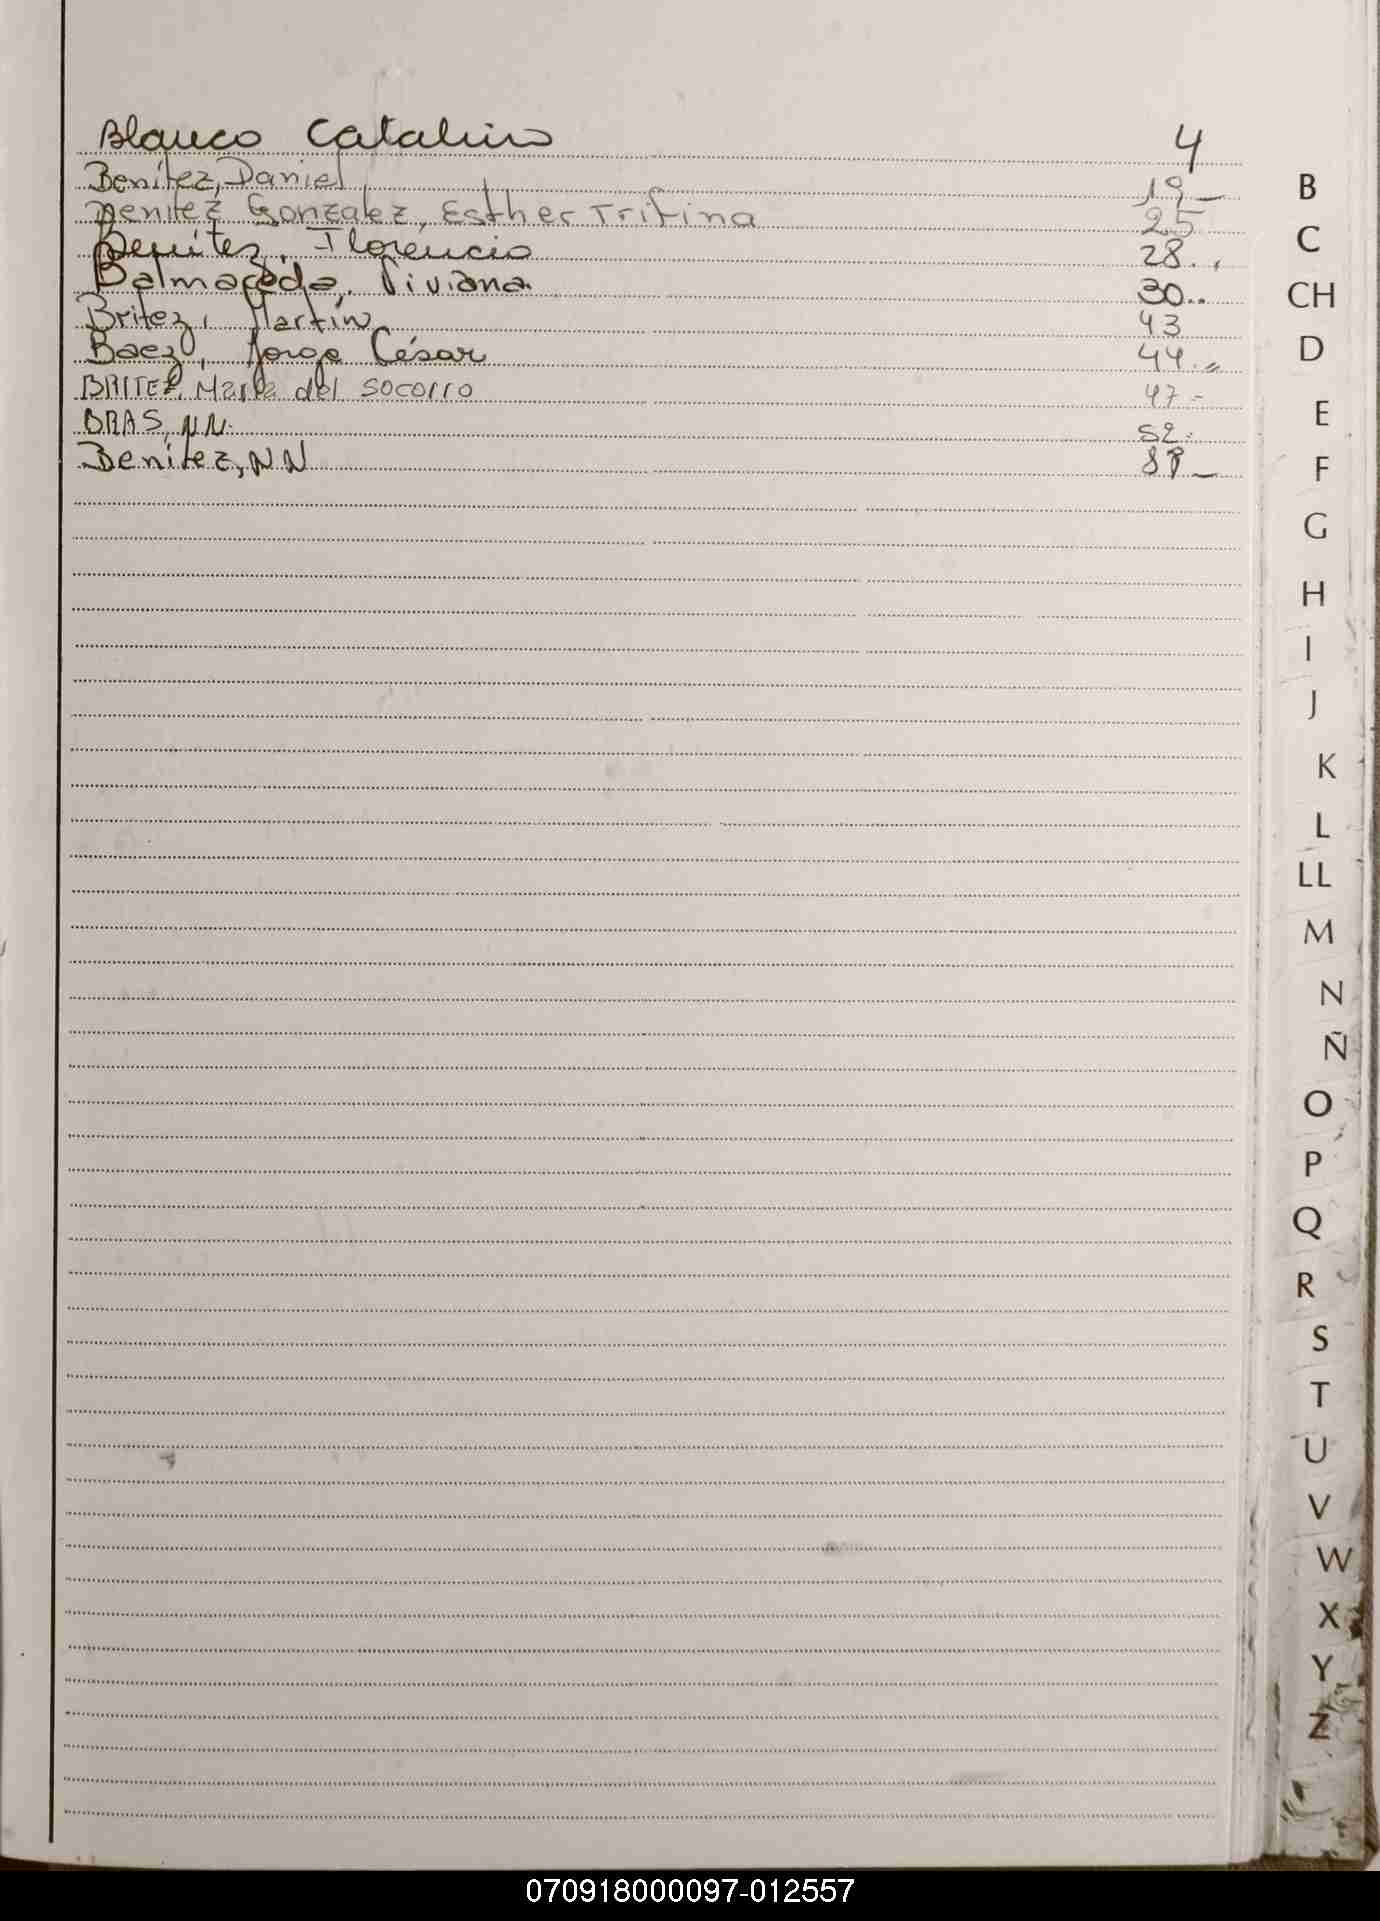 Blanco Catalino 4
Benítez, Daniel 19_
Benitez Gonzalez, Esther Trifina 25
Benítez, Florencio 28..
Balmaceda, Viviana 30..
Britez, Martín 43
Baez, Jorge César 44.=
BRITEZ, María del SOCORRO 47-
BRAS, NN. 52.
Benítez, NN
B
C
CH
D
E
F
G
H
I
J
K
L
LL
M
N
Ñ
O
P
Q
R
S
T
U
V
W
X
Y
Z
070918000097-012557